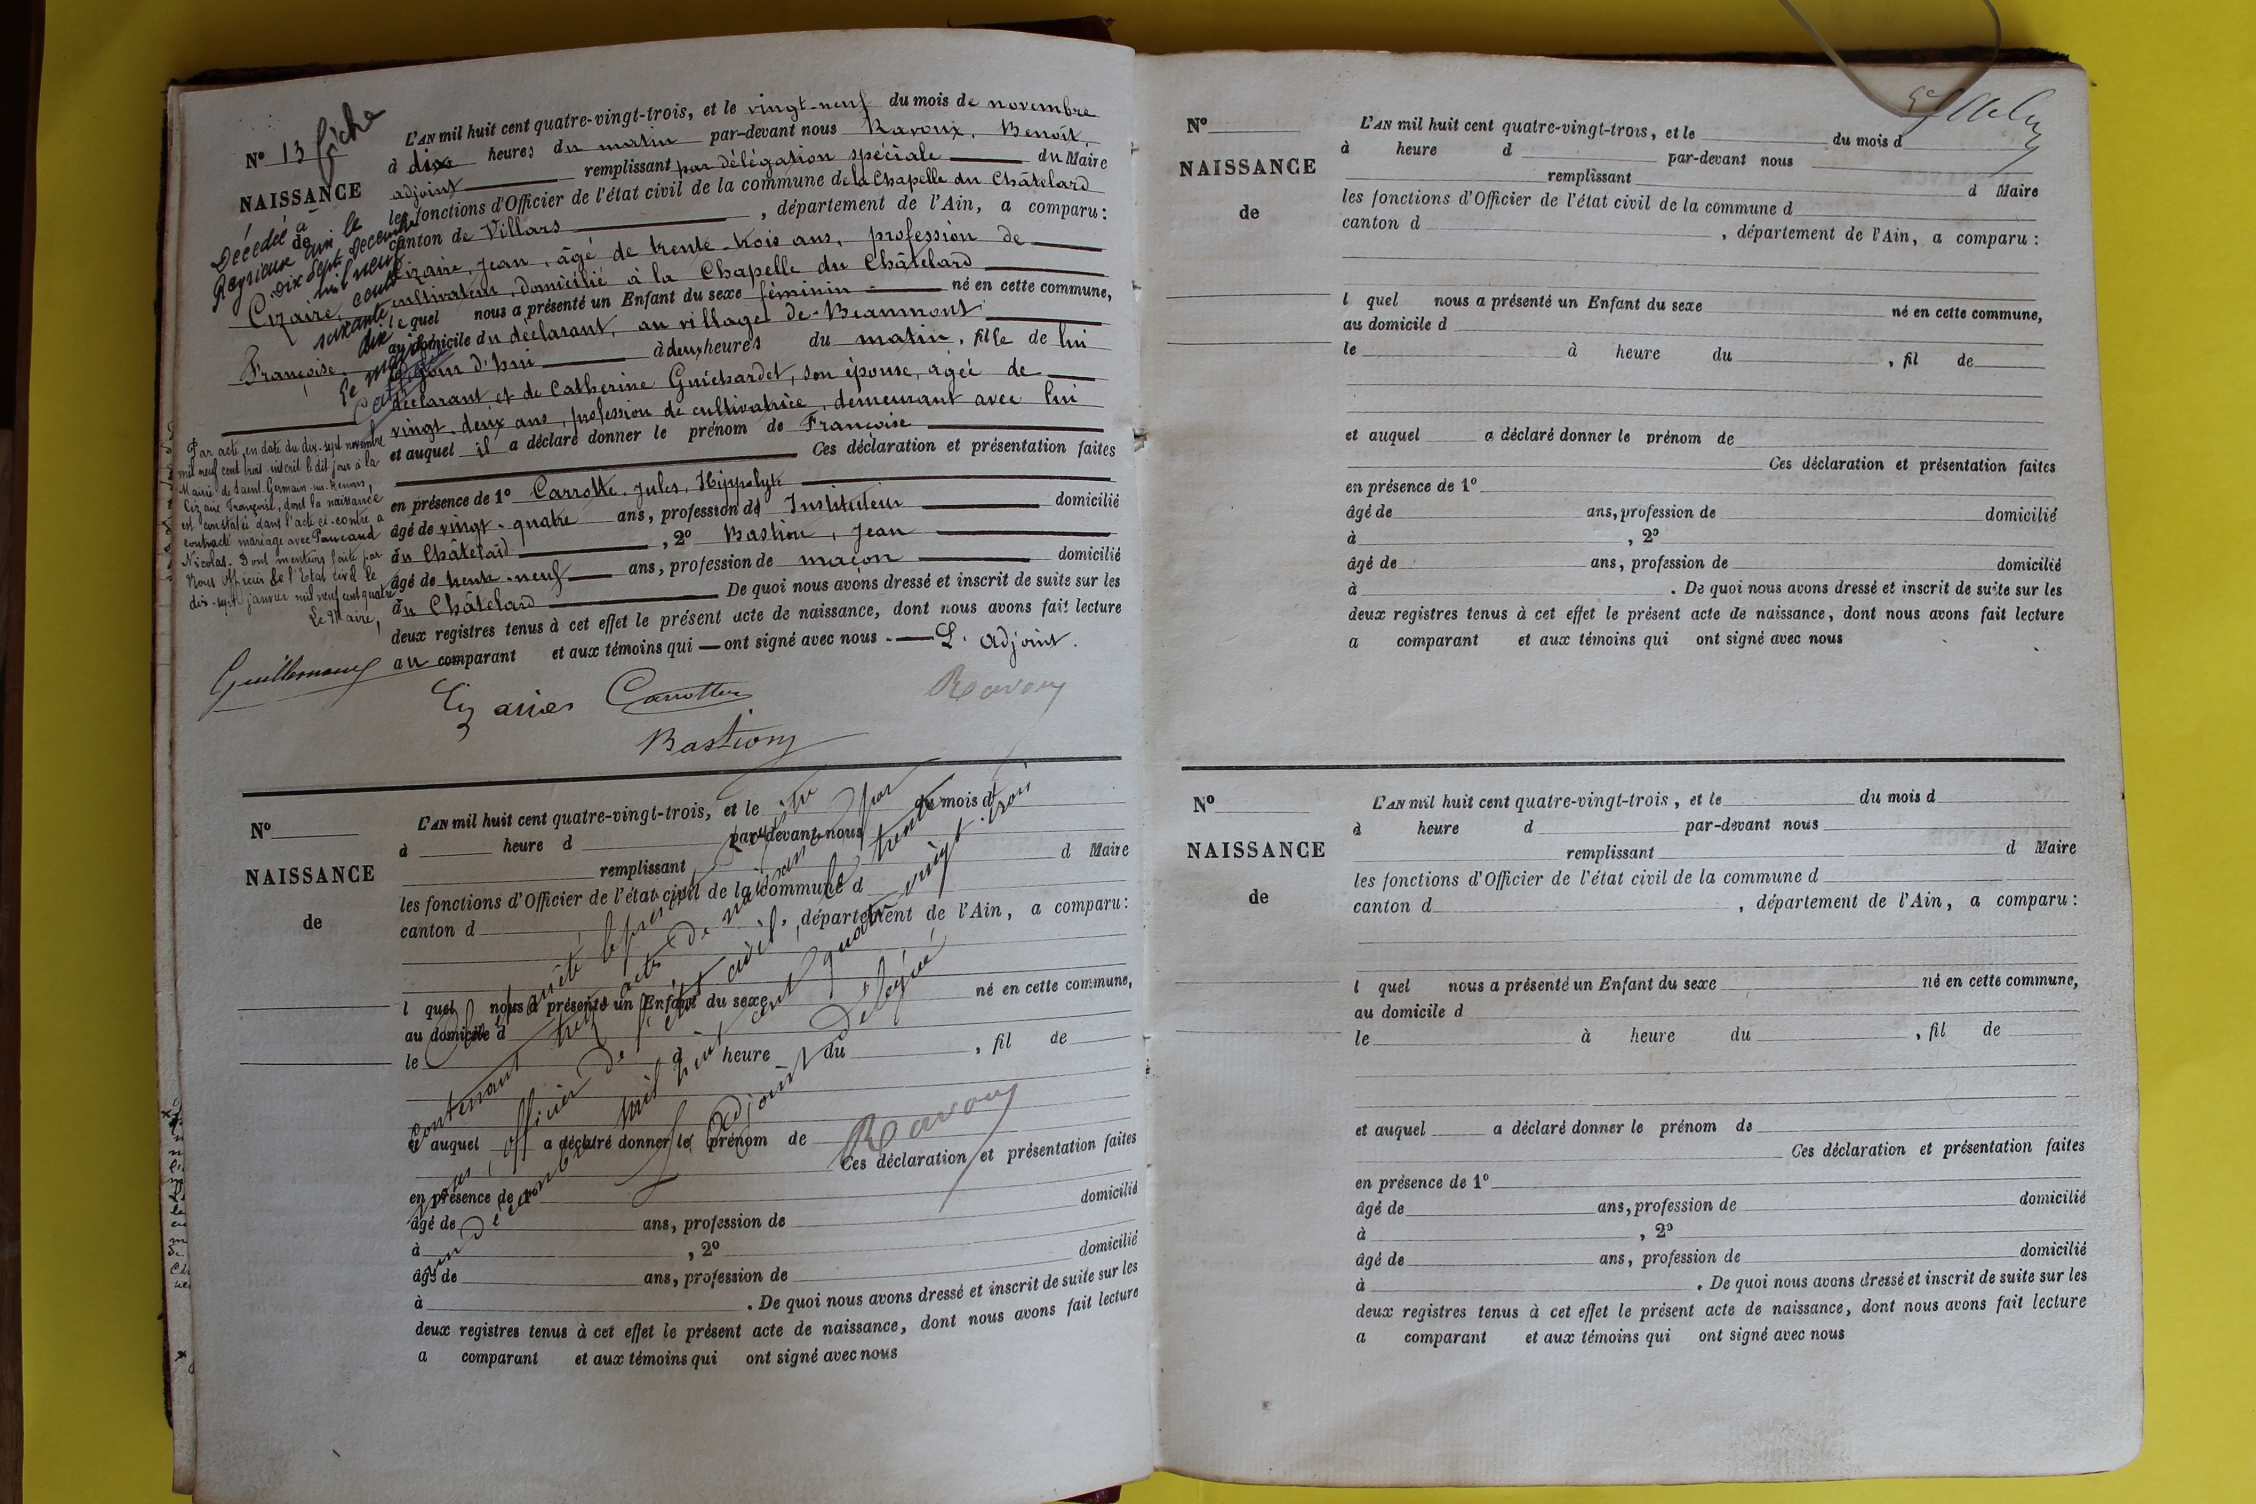 Nº 13 fiche
NAISSANCE
de
Cizaire,
Françoise.
Décédée à
Reyrieux Ain le
dix sept Decembre
mil neuf
cent
soixante
dix
Le Maire
Par acte, en date du dix-sept novembre
mil neuf cent trois inscrit le dit jour à la
Mairie de Saint-Germain-sur-Renon,
Cizaire Françoise, dont la naissance
est constatée dans l'acte ci-contre a
contracté mariage avec Paucaud
Nicolas. Dont mention faite par
Nous Officier de l'Etat Civil le
dix-sept janvier mil neuf cent quatre
Le Maire,
Guillemaud
L'AN mil huit cent quatre-vingt-trois, et le vingt-neuf du mois de novembre
à dix heures du matin par-devant nous Ravoux, Benoît
adjoint remplissant par délégation spéciale du Maire
les fonctions d'Officier de l'état civil de la commune de la Chapelle du Châtelard
canton de Villars, département de l'Ain, a comparu:
Cizaire, Jean, âgé de trente-trois ans, profession de
cultivateur, domicilié à la Chapelle du Châtelard
lequel nous a présenté un Enfant du sexe féminin né en cette commune,
au domicile du déclarant, au village de Beaumont
le jour d'hui à deux heures du matin, fille de lui
déclarant et de Catherine Guichardet, son épouse, âgée de
vingt-deux ans, profession de cultivatrice, demeurant avec lui
et auquel il a déclaré donner le prénom de Françoise
Ces déclaration et présentation faites
en présence de 1º Carrotte, Jules, Hippolyte
âgé de vingt-quatre ans, profession de Instituteur domicilié
au Châtelard, 2º Bastion, Jean
âgé de trente-neuf ans, profession de maçon domicilié
au Châtelard De quoi nous avons dressé et inscrit de suite sur les
deux registres tenus à cet effet le présent acte de naissance, dont nous avons fait lecture
au comparant et aux témoins qui ont signé avec nous. L'adjoint.
Cizaire Carrotte Ravoux
Bastion
Nº
NAISSANCE
de
L'AN mil huit cent quatre-vingt-trois, et le du mois d
à heure d par-devant nous
remplissant d Maire
les fonctions d'Officier de l'état civil de la commune d
canton d , département de l'Ain, a comparu:
l quel nous a présenté un Enfant du sexe né en cette commune,
au domicile d
le à heure du , fil de
et auquel a déclaré donner le prénom de
Ces déclaration et présentation faites
en présence de 1º
âgé de ans, profession de domicilié
à , 2º
âgé de ans, profession de domicilié
à . De quoi nous avons dressé et inscrit de suite sur les
deux registres tenus à cet effet le présent acte de naissance, dont nous avons fait lecture
a comparant et aux témoins qui ont signé avec nous
arrêté le présent registre
contenant treize actes de naissance par
nous, officier de l'état civil, le trente
un décembre mil huit cent quatre vingt trois
L'Adjoint délégué
Ravoux
Nº
NAISSANCE
de
L'AN mil huit cent quatre-vingt-trois, et le du mois d
à heure d par-devant nous
remplissant d Maire
les fonctions d'Officier de l'état civil de la commune d
canton d , département de l'Ain, a comparu:
l quel nous a présenté un Enfant du sexe né en cette commune,
au domicile d
le à heure du , fil de
et auquel a déclaré donner le prénom de
Ces déclaration et présentation faites
en présence de 1º
âgé de ans, profession de domicilié
à , 2º
âgé de ans, profession de domicilié
à . De quoi nous avons dressé et inscrit de suite sur les
deux registres tenus à cet effet le présent acte de naissance, dont nous avons fait lecture
a comparant et aux témoins qui ont signé avec nous
Nº
NAISSANCE
de
L'AN mil huit cent quatre-vingt-trois, et le du mois d
à heure d par-devant nous
remplissant d Maire
les fonctions d'Officier de l'état civil de la commune d
canton d , département de l'Ain, a comparu:
l quel nous a présenté un Enfant du sexe né en cette commune,
au domicile d
le à heure du , fil de
et auquel a déclaré donner le prénom de
Ces déclaration et présentation faites
en présence de 1º
âgé de ans, profession de domicilié
à , 2º
âgé de ans, profession de domicilié
à . De quoi nous avons dressé et inscrit de suite sur les
deux registres tenus à cet effet le présent acte de naissance, dont nous avons fait lecture
a comparant et aux témoins qui ont signé avec nous